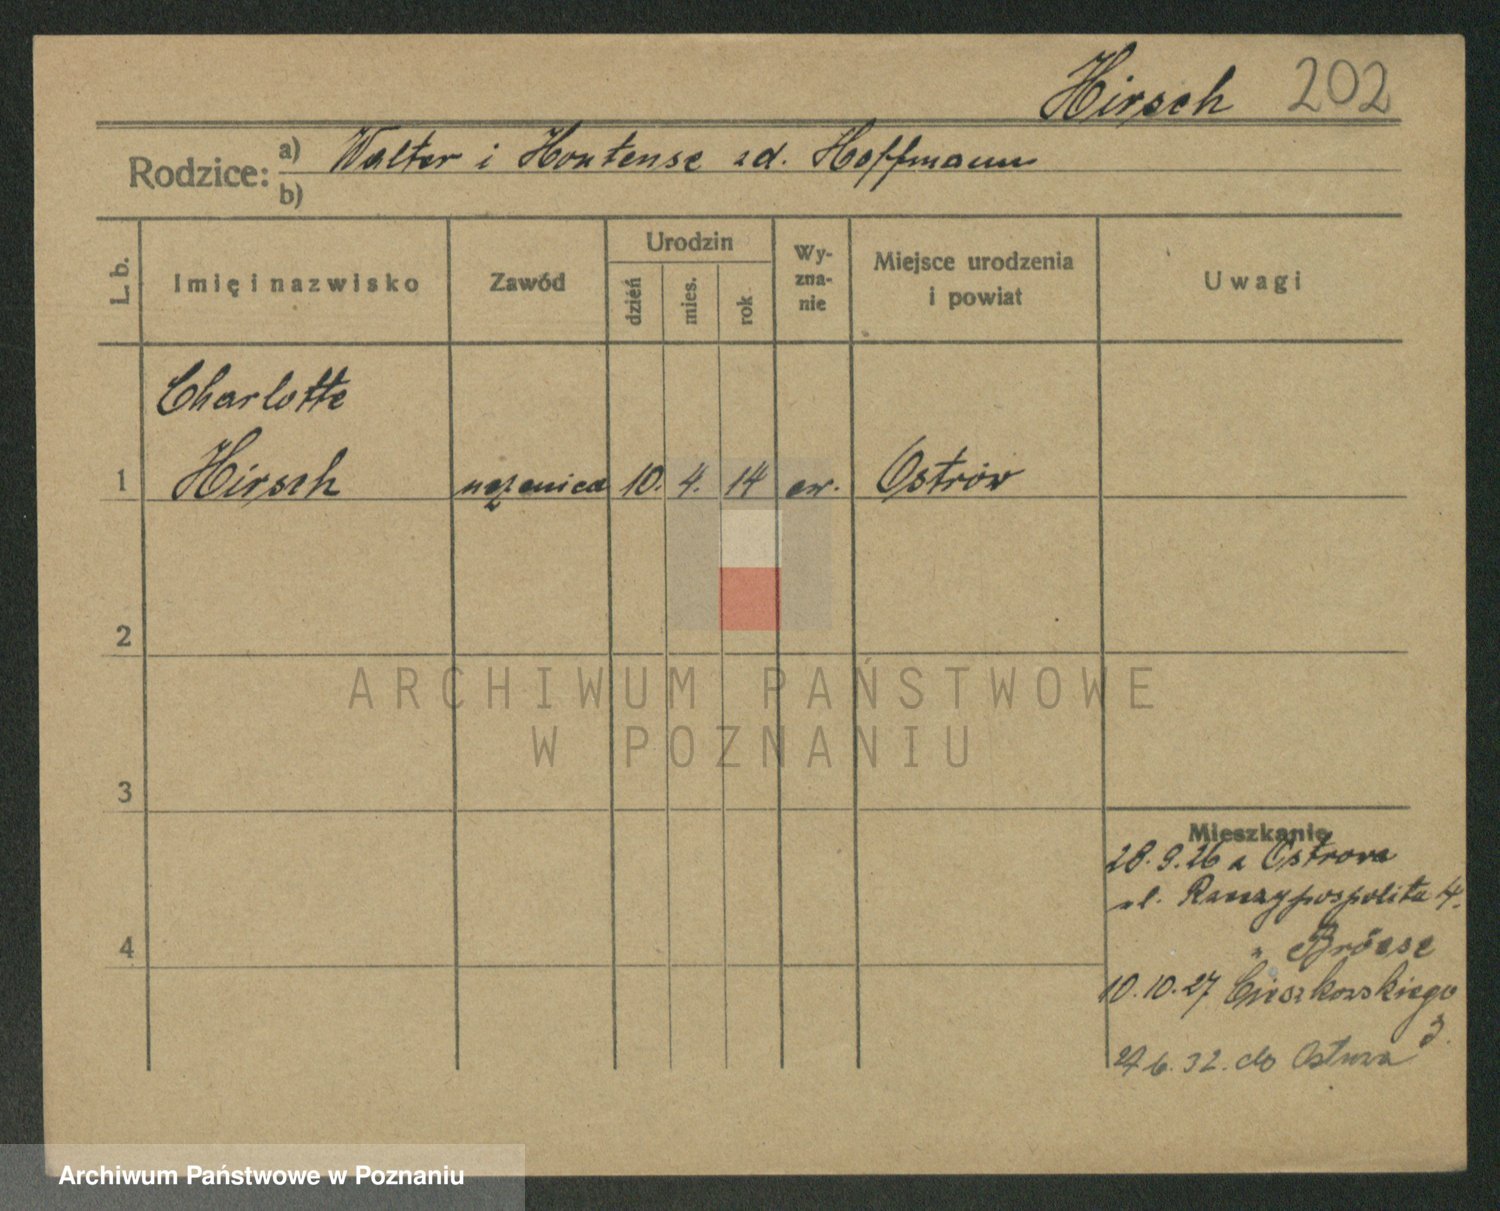 Hirsch 202
Rodzice: a) Walter i Hortense zd. Hoffmann
b)
L. b. Imię i nazwisko Zawód Urodzin dzień mies. rok Wy-zna-nie Miejsce urodzenia i powiat Uwagi
Charlotte
1 Hirsch uczenica 10. 4. 14 ew. Ostrów
2
3
Mieszkanie
28. 9. 26 z Ostrowa
ul. 4.
4 "
10. 10. 27 Cieszkowskiego
3.
24 6. 32. do Ostrowa
ARCHIWUM PAŃSTWOWE
W POZNANIU
Archiwum Państwowe w Poznaniu